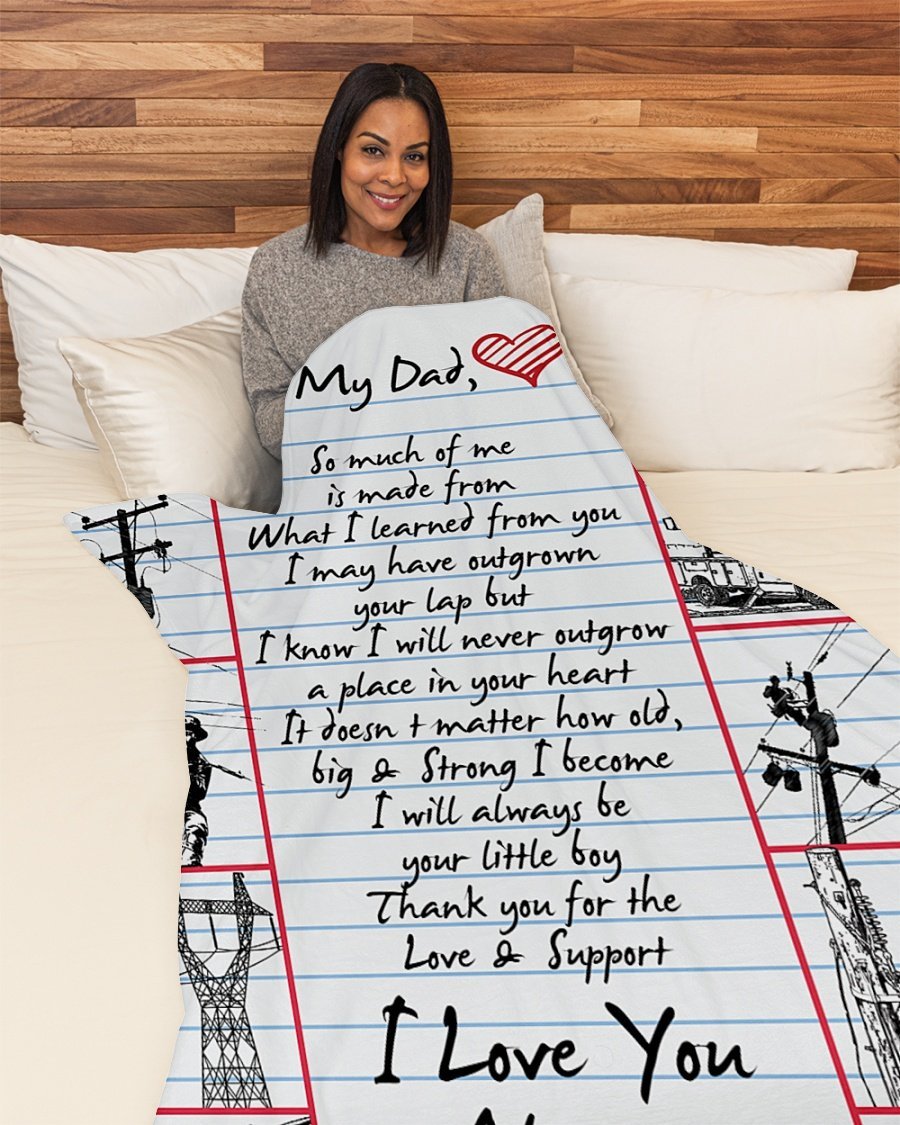 My Dad,
So much of me
is made from
What I learned from you
I may have outgrown
your lap but
I know I will never outgrow
a place in your heart
It doesn t matter how old,
big & Strong I become
I will always be
your little boy
Thank you for the
Love & Support
I Love You